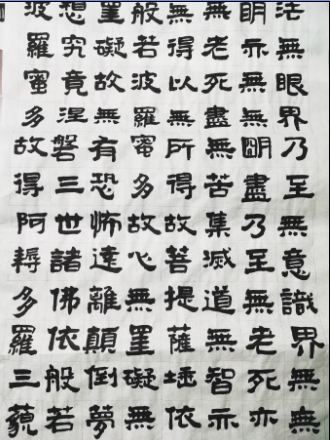 法無眼界乃至無意識界無無
明亦無無明盡乃至無老死亦
無老死盡無苦集滅道無智亦
無得以無所得故菩提薩埵依
般若波羅蜜多故心無罣礙無
罣礙故無有恐怖遠離顛倒夢
想究竟涅磐三世諸佛依般若
波羅蜜多故得阿耨多羅三藐